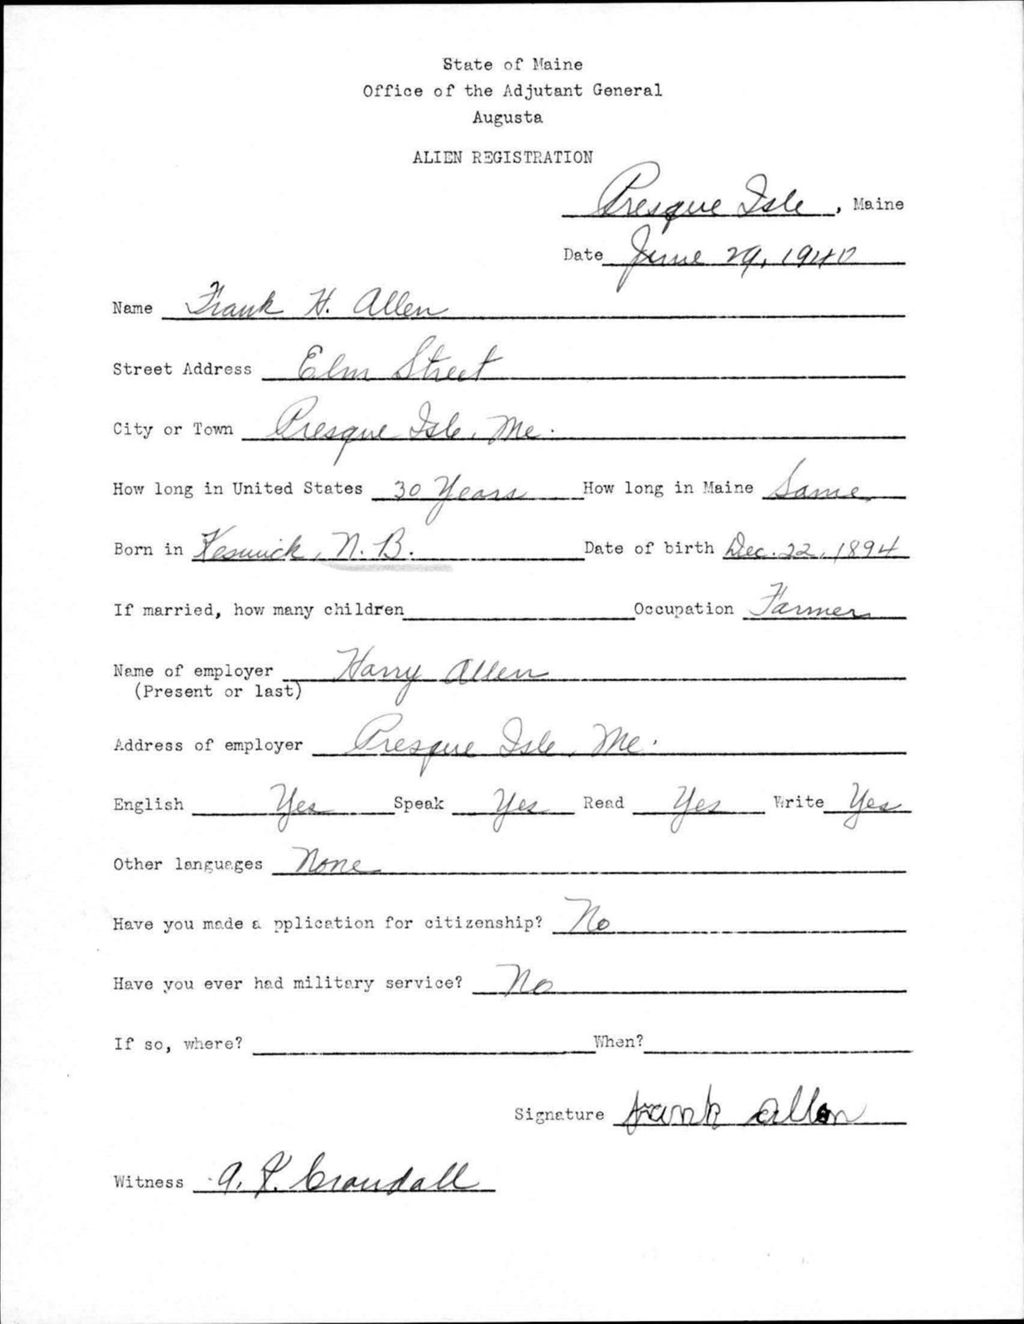 State of Maine
Office of the Adjutant General
Augusta
ALIEN REGISTRATION
Presque Isle, Maine
Date June 29, 1940
Name Frank H. Allen
Street Address Elm Street
City or Town Presque Isle, Me.
How long in United States 30 Years How long in Maine Same
Born in Keswick, N. B. Date of birth Dec. 22, 1894
If married, how many children Occupation Farmer
Name of employer Harry Allen
(Present or last)
Address of employer Presque Isle, Me.
English Yes Speak Yes Read Yes Write Yes
Other languages None
Have you made a pplication for citizenship? No
Have you ever had military service? No
If so, where? When?
Signature frank allen
Witness A. Crandall